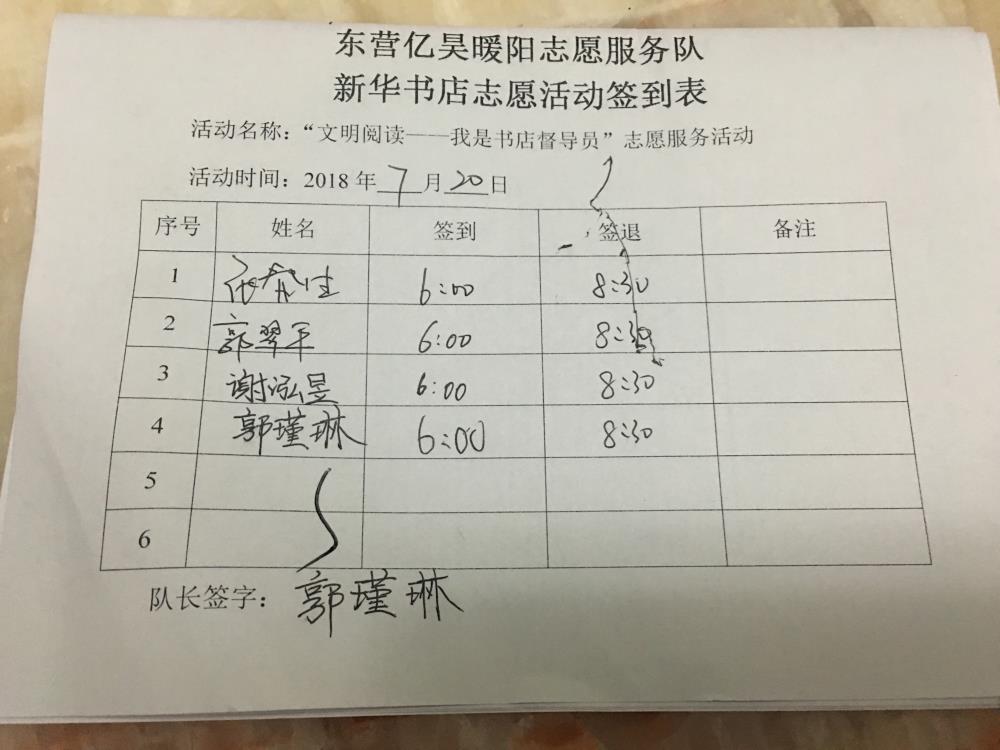 东营亿昊暖阳志愿服务队
新华书店志愿活动签到表
活动名称：“文明阅读——我是书店督导员”志愿服务活动
活动时间：2018年7月20日
序号 姓名 签到 签退 备注
1 6:00 8:30
2 郭翠平 6:00 8:30
3 谢泓昱 6:00 8:30
4 郭瑾琳 6:00 8:30
5
6
队长签字：郭瑾琳